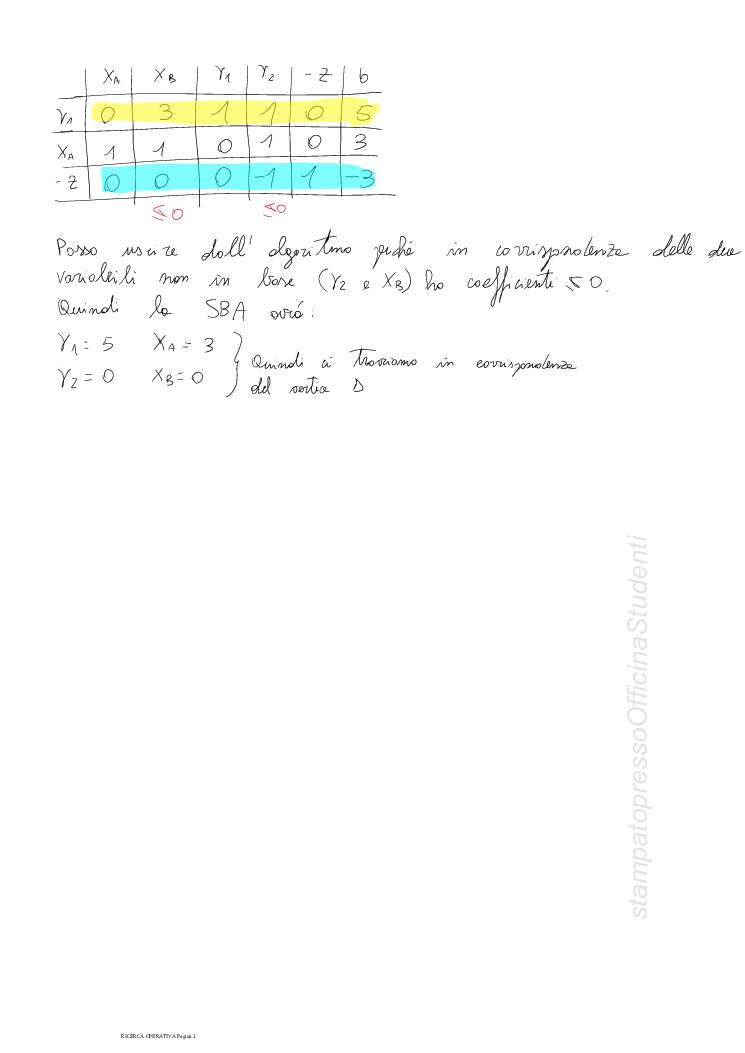 XA XB γ1 γ2 -Z b
γ1 0 3 1 1 0 5
XA 1 1 0 1 0 3
-Z 0 0 0 -1 1 -3
≤0 ≤0
Posso uscire dall' algoritmo perché in corrispondenza delle due
variabili non in base (γ2 e XB) ho coefficienti ≤ 0.
Quindi la SBA avrà:
γ1 = 5 XA = 3
γ2 = 0 XB = 0
Quindi ci troviamo in corrispondenza
del vertice D
stampatopressoOfficinaStudenti
RICERCA OPERATIVA Pagina 2